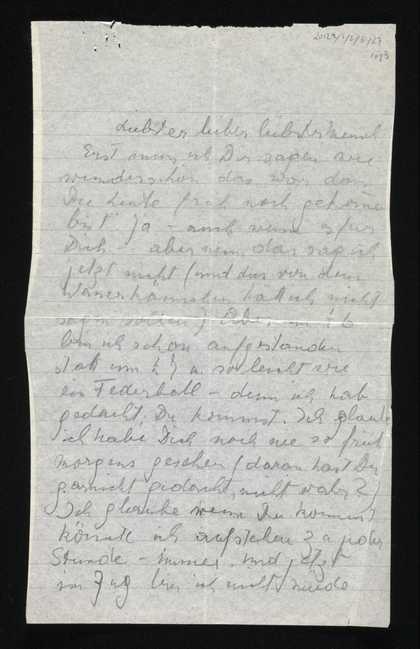 Liebster lieber liebster Mensch
Erst muss ich Dir sagen wie
wunderschön das war dass
Du heute früh noch gekommen
bist. Ja - auch wenn
Dich - aber nein, das sag ich
jetzt nicht (und das von dem
hätt ich nicht
sagen sollen) Aber um 1/2 6
bin ich schon aufgestanden
statt um 1/2 7 u. so leicht wie
ein Federball - denn ich hab
gedacht, Du kommst. Ich glaube
ich habe Dich noch nie so früh
morgens gesehen (daran hast Du
garnicht gedacht, nicht wahr?)
Ich glaube wenn Du kommst
könnte ich aufstehen zu jeder
Stunde - immer. Und jetzt
im Zug bin ich nicht müde